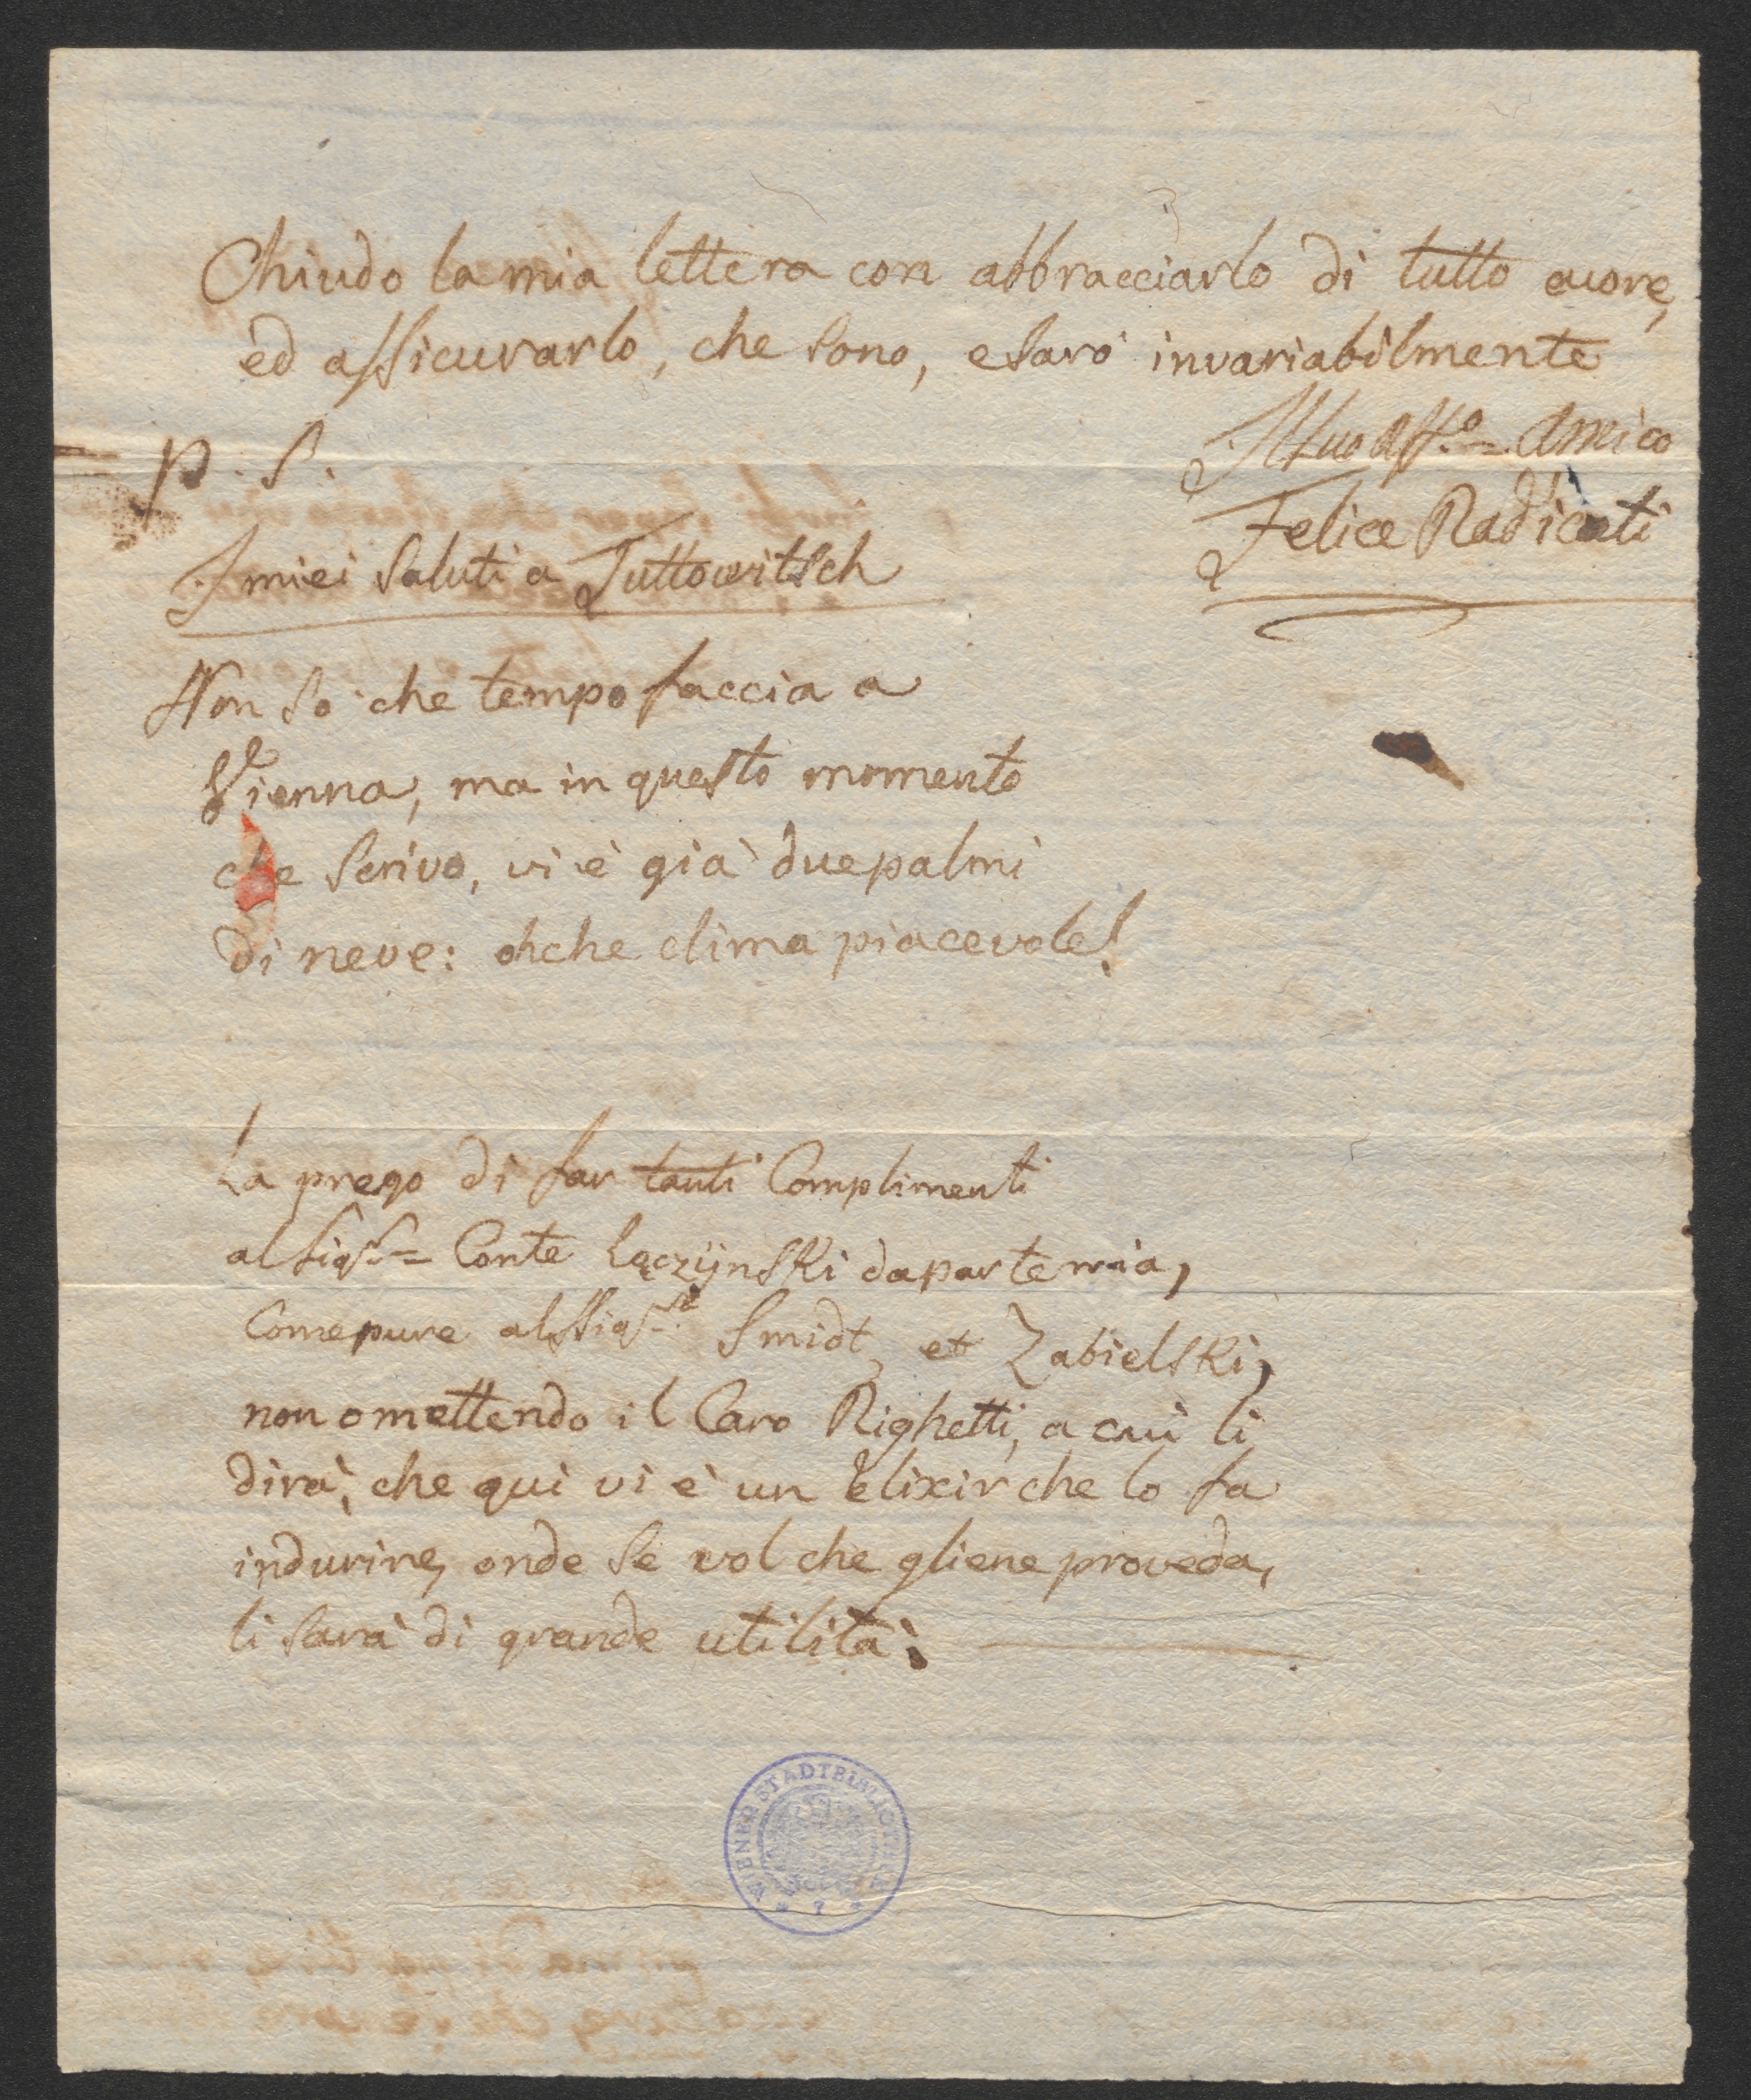 Chiudo la mia lettera con abbracciarlo di tutto cuore,
ed assicurarlo, che sono, e sarò invariabilmente
Il suo aff.º Amico
Felice Radicati
P. S.
I miei saluti a Tuttowitsch
Non so che tempo faccia a
Vienna, ma in questo momento
che scrivo, vi è già due palmi
di neve: oh che clima piacevole!
La prego di far tanti Complimenti
al Sigr = Conte Lączÿnski da parte mia,
Come pure al Sigr Smidt, et Zabielski,
non omettendo il Caro Righetti, a cui li
dirà, che qui vi è un elixir che lo fa
indurire, onde se vol che gliene proveda,
li sarà di grande utilità.
WIENER STADTBIBLIOTHEK